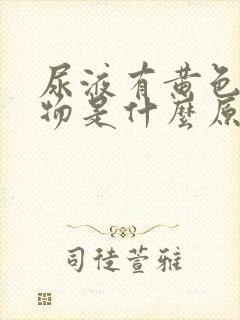 尿液有黄色
物是什麼原
司徒萱雅